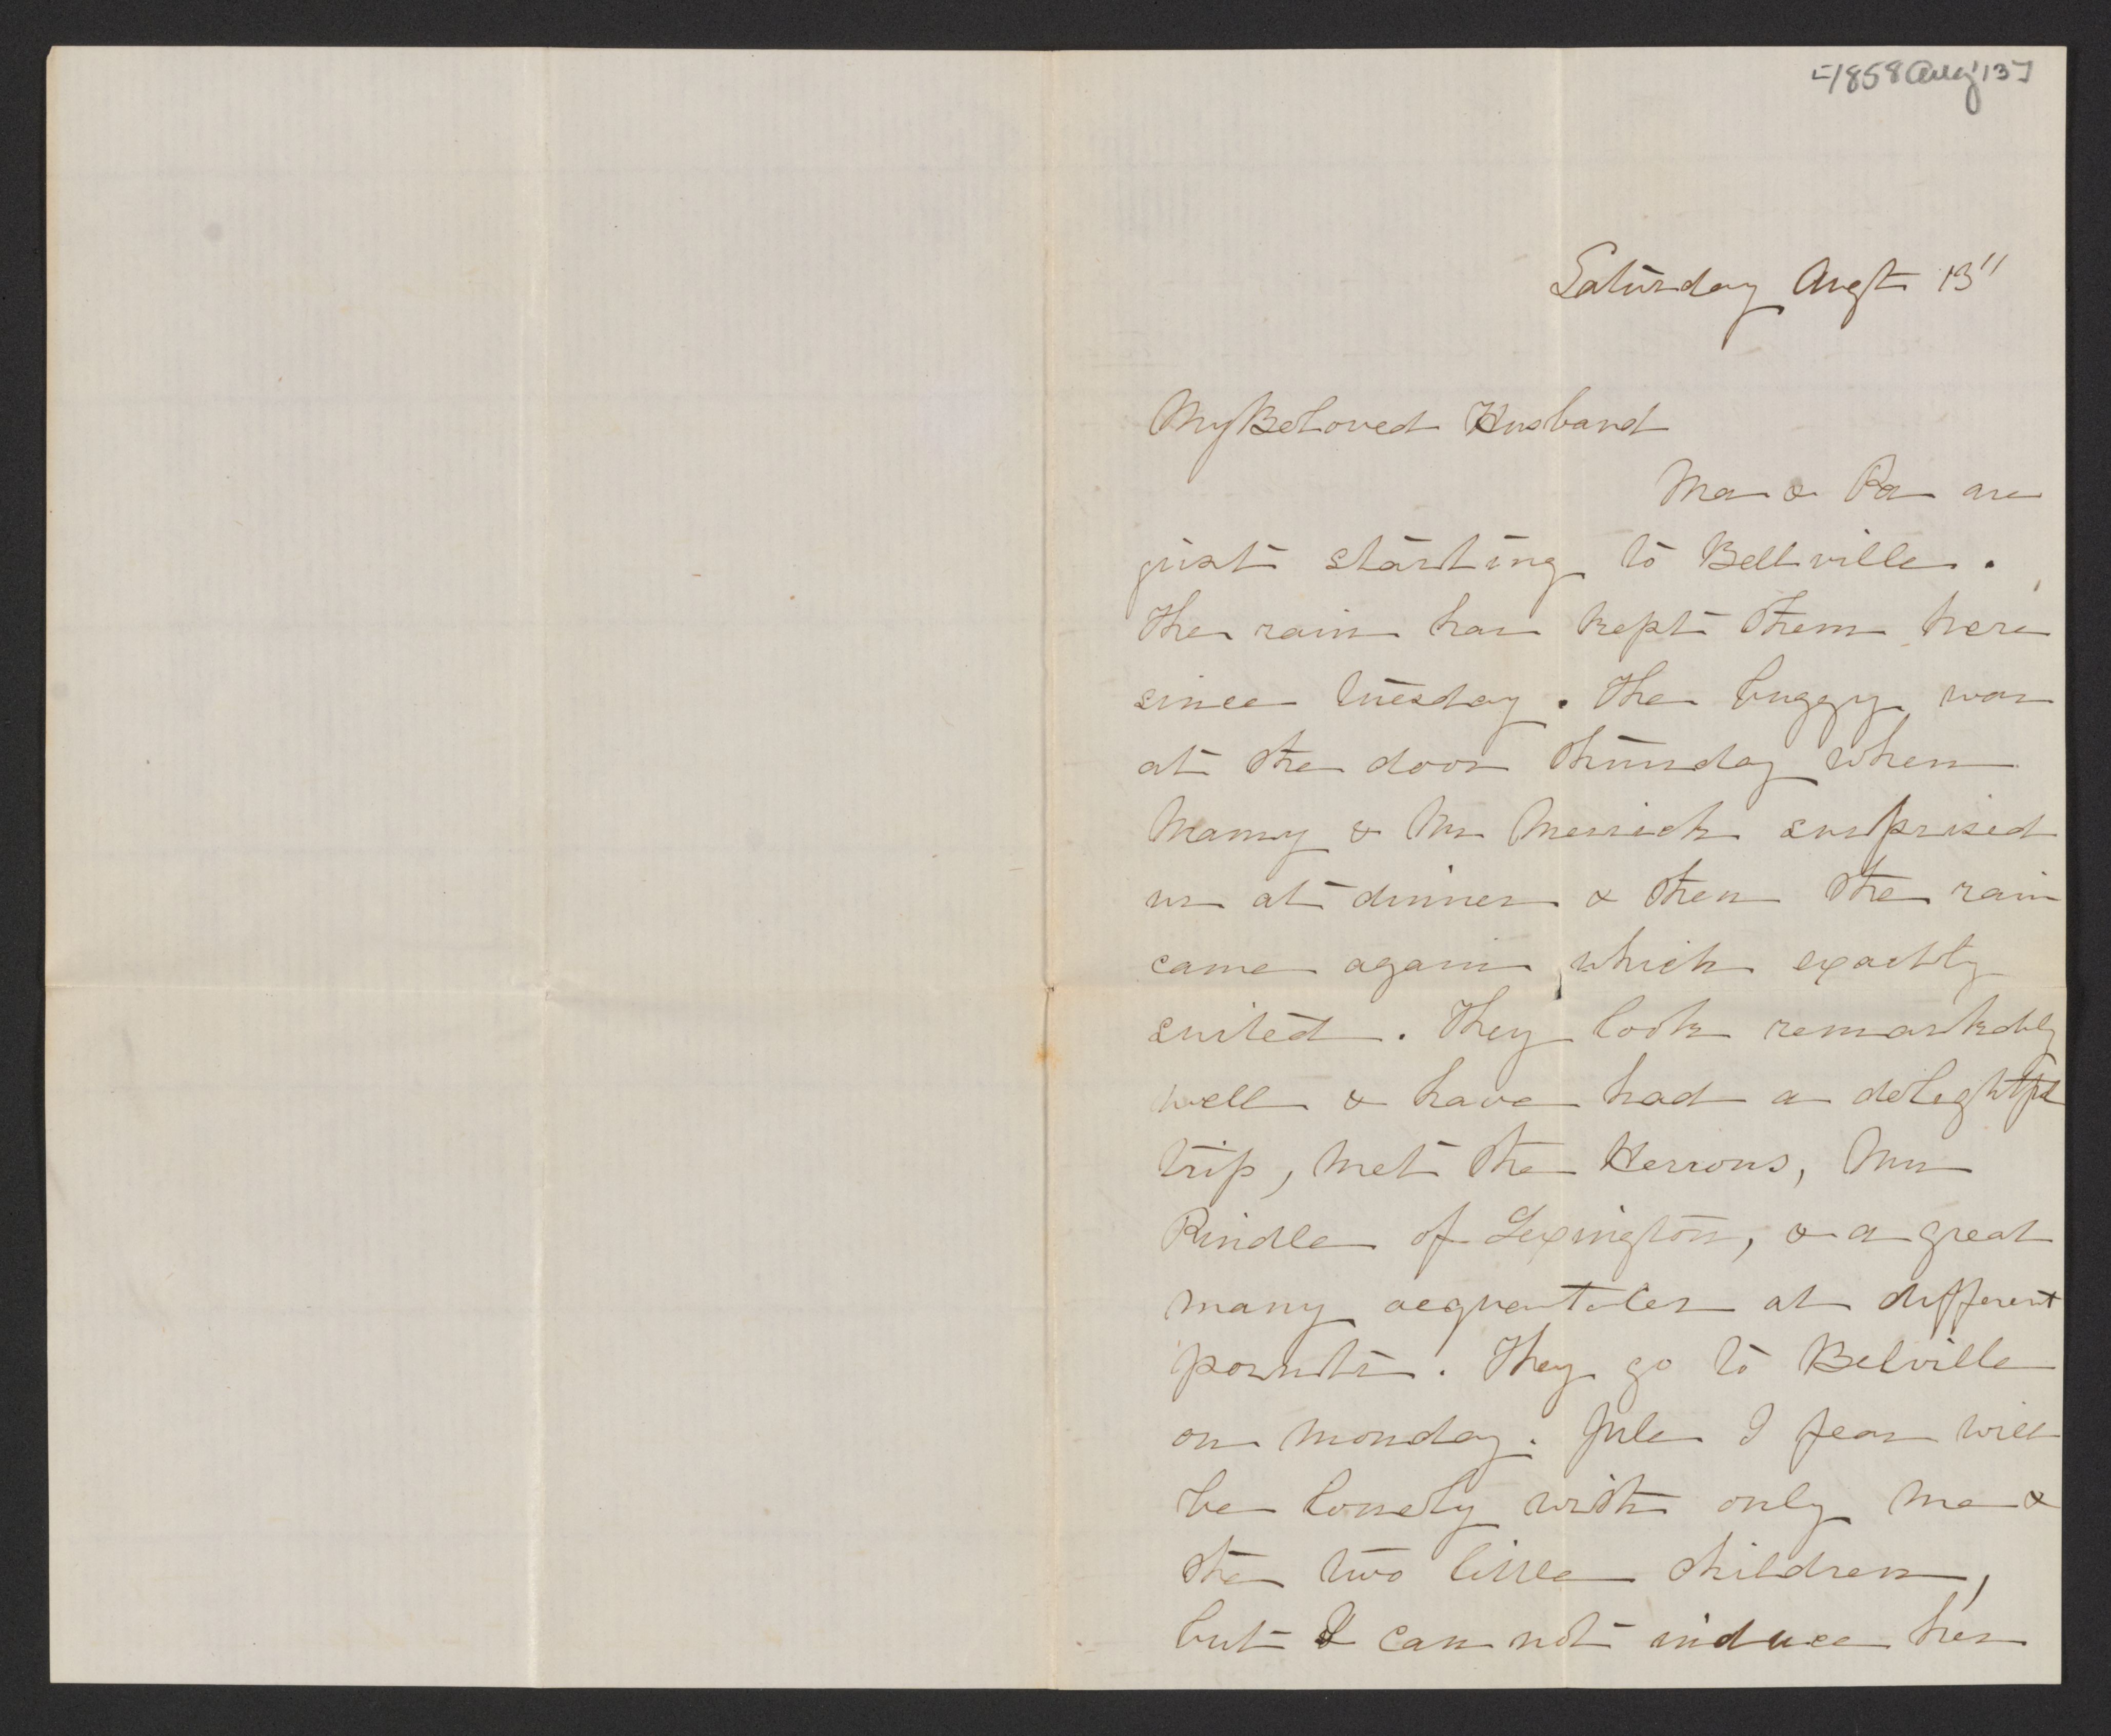 [1858 Aug 13]
Saturday Augt 13"
My Beloved Husband
Ma & Pa are
just starting to Bellville.
The rain has kept them here
since Tuesday. The buggy was
at the door Thursday when
Mamy & Mr Merrick surprised
us at dinner & then the rain
came again which exactly
suited. They look remarkably
well & have had a delightful
trip, met the Herrons, Mrs
Rindle of Lexington, & a great
many at different
points. They go to Belville
on Monday. Jule I fear will
be lonely with only me &
the two little children,
but I can not induce her